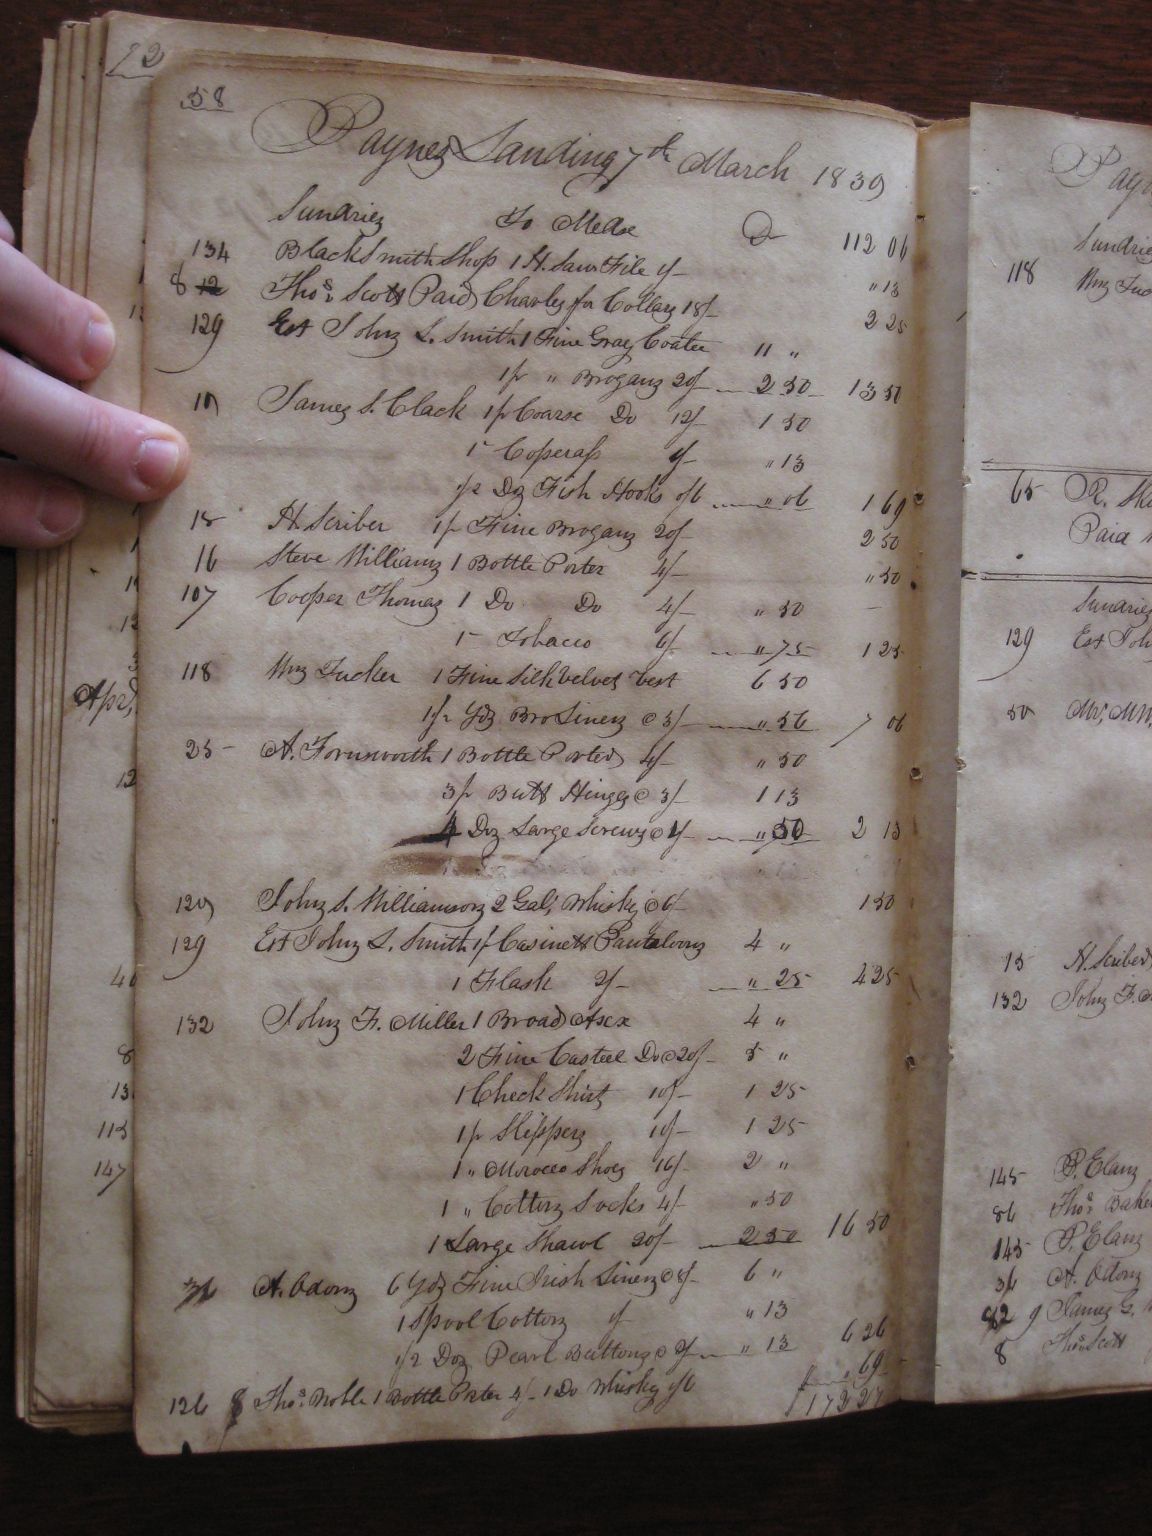 22
58
Paynes Landing 7th March 1839
Sundries To Mdse Dr 112 06
134 BlackSmith Shop 1 H. Saw File 1/- " 13
8 12 Thos. Scott Paid Charles for Collars 18/- 2 25
129 Est Johnz L. Smith 1 Fine Gray Coatee 11 "
1 pr " Broganz 20/- 2 50 13 50
10 James S. Clack 1 pr Coarse Do 12/- 1 50
1 - Coperass 1/- " 13
1/2 Doz Fish Hooks 0/6 " 06 1 69
15 H. Scriber 1 pr Fine Broganz 20/- 2 50
16 Steve Williamz 1 Bottle Porter 4/- " 50
107 Cooper Thomas 1 Do Do 4/- " 50
1 - Tobacco 6/- " 75 1 25
118 Wm Tucker 1 Fine Silk Velvet Vest 6 50
1 1/2 Ydz Bro Linenz @ 3/- " 56 7 06
25 A. Fornsworth 1 Bottle Porter 4/- " 50
3 pr Butt Hinges @ 3/- 1 13
4 Doz Large Screws @ 1/- " 50 2 13
120 Johnz S. Williamsonz 2 Gals Whisky @ 6/- 1 50
129 Est Johnz L. Smith 1 pr Casinett Pantaloonz 4 "
1 Flask 2/- " 25 4 25
132 Johnz F. Miller 1 Broad Axe 4 "
2 Fine Casteel Do @ 20/- 5 "
1 Check Shirt 10/- 1 25
1 pr Slippers 10/- 1 25
1 " Morocco Shoes 16/- 2 "
1 " Cottonz Socks 4/- " 50
1 Large Shawl 20/- 2 50 16 50
36 A. Odomz 6 Ydz Fine Irish Linenz @ 8/- 6 "
1 Spool Cottonz 1/- " 13
1/2 Doz Pearl Buttonz @ 2/- " 13 6 26
126 Thos. Noble 1 Bottle Porter 4/- 1 Do Whisky 1/6 " 69
$172 27
Sundries
118 Wm Tuc
65
Paid
Sundries
129 Est Joh
50
15 H. Scriber
132 Johnz F.
145 P. Elamz
86 Thos. Bake
145 P. Elamz
36 A. Odomz
9 James G.
8 Thos. Scott